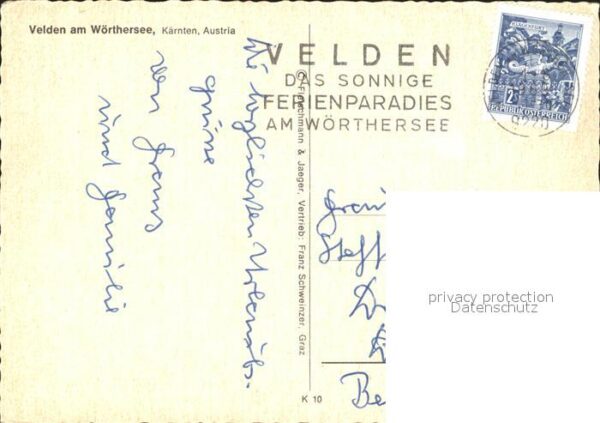 Velden am Wörthersee, Kärnten, Austria
VELDEN
DAS SONNIGE
FERIENPARADIES
AM WÖRTHERSEE
KLAGENFURT
REPUBLIK ÖSTERREICH
9220
Die herzlichsten Urlaubs-
grüsse
von Franz
und Familie
© Fleischmann & Jaeger, Vertrieb: Franz Schweinzer, Graz
K 10
Frau
Steff
Be
privacy protection
Datenschutz